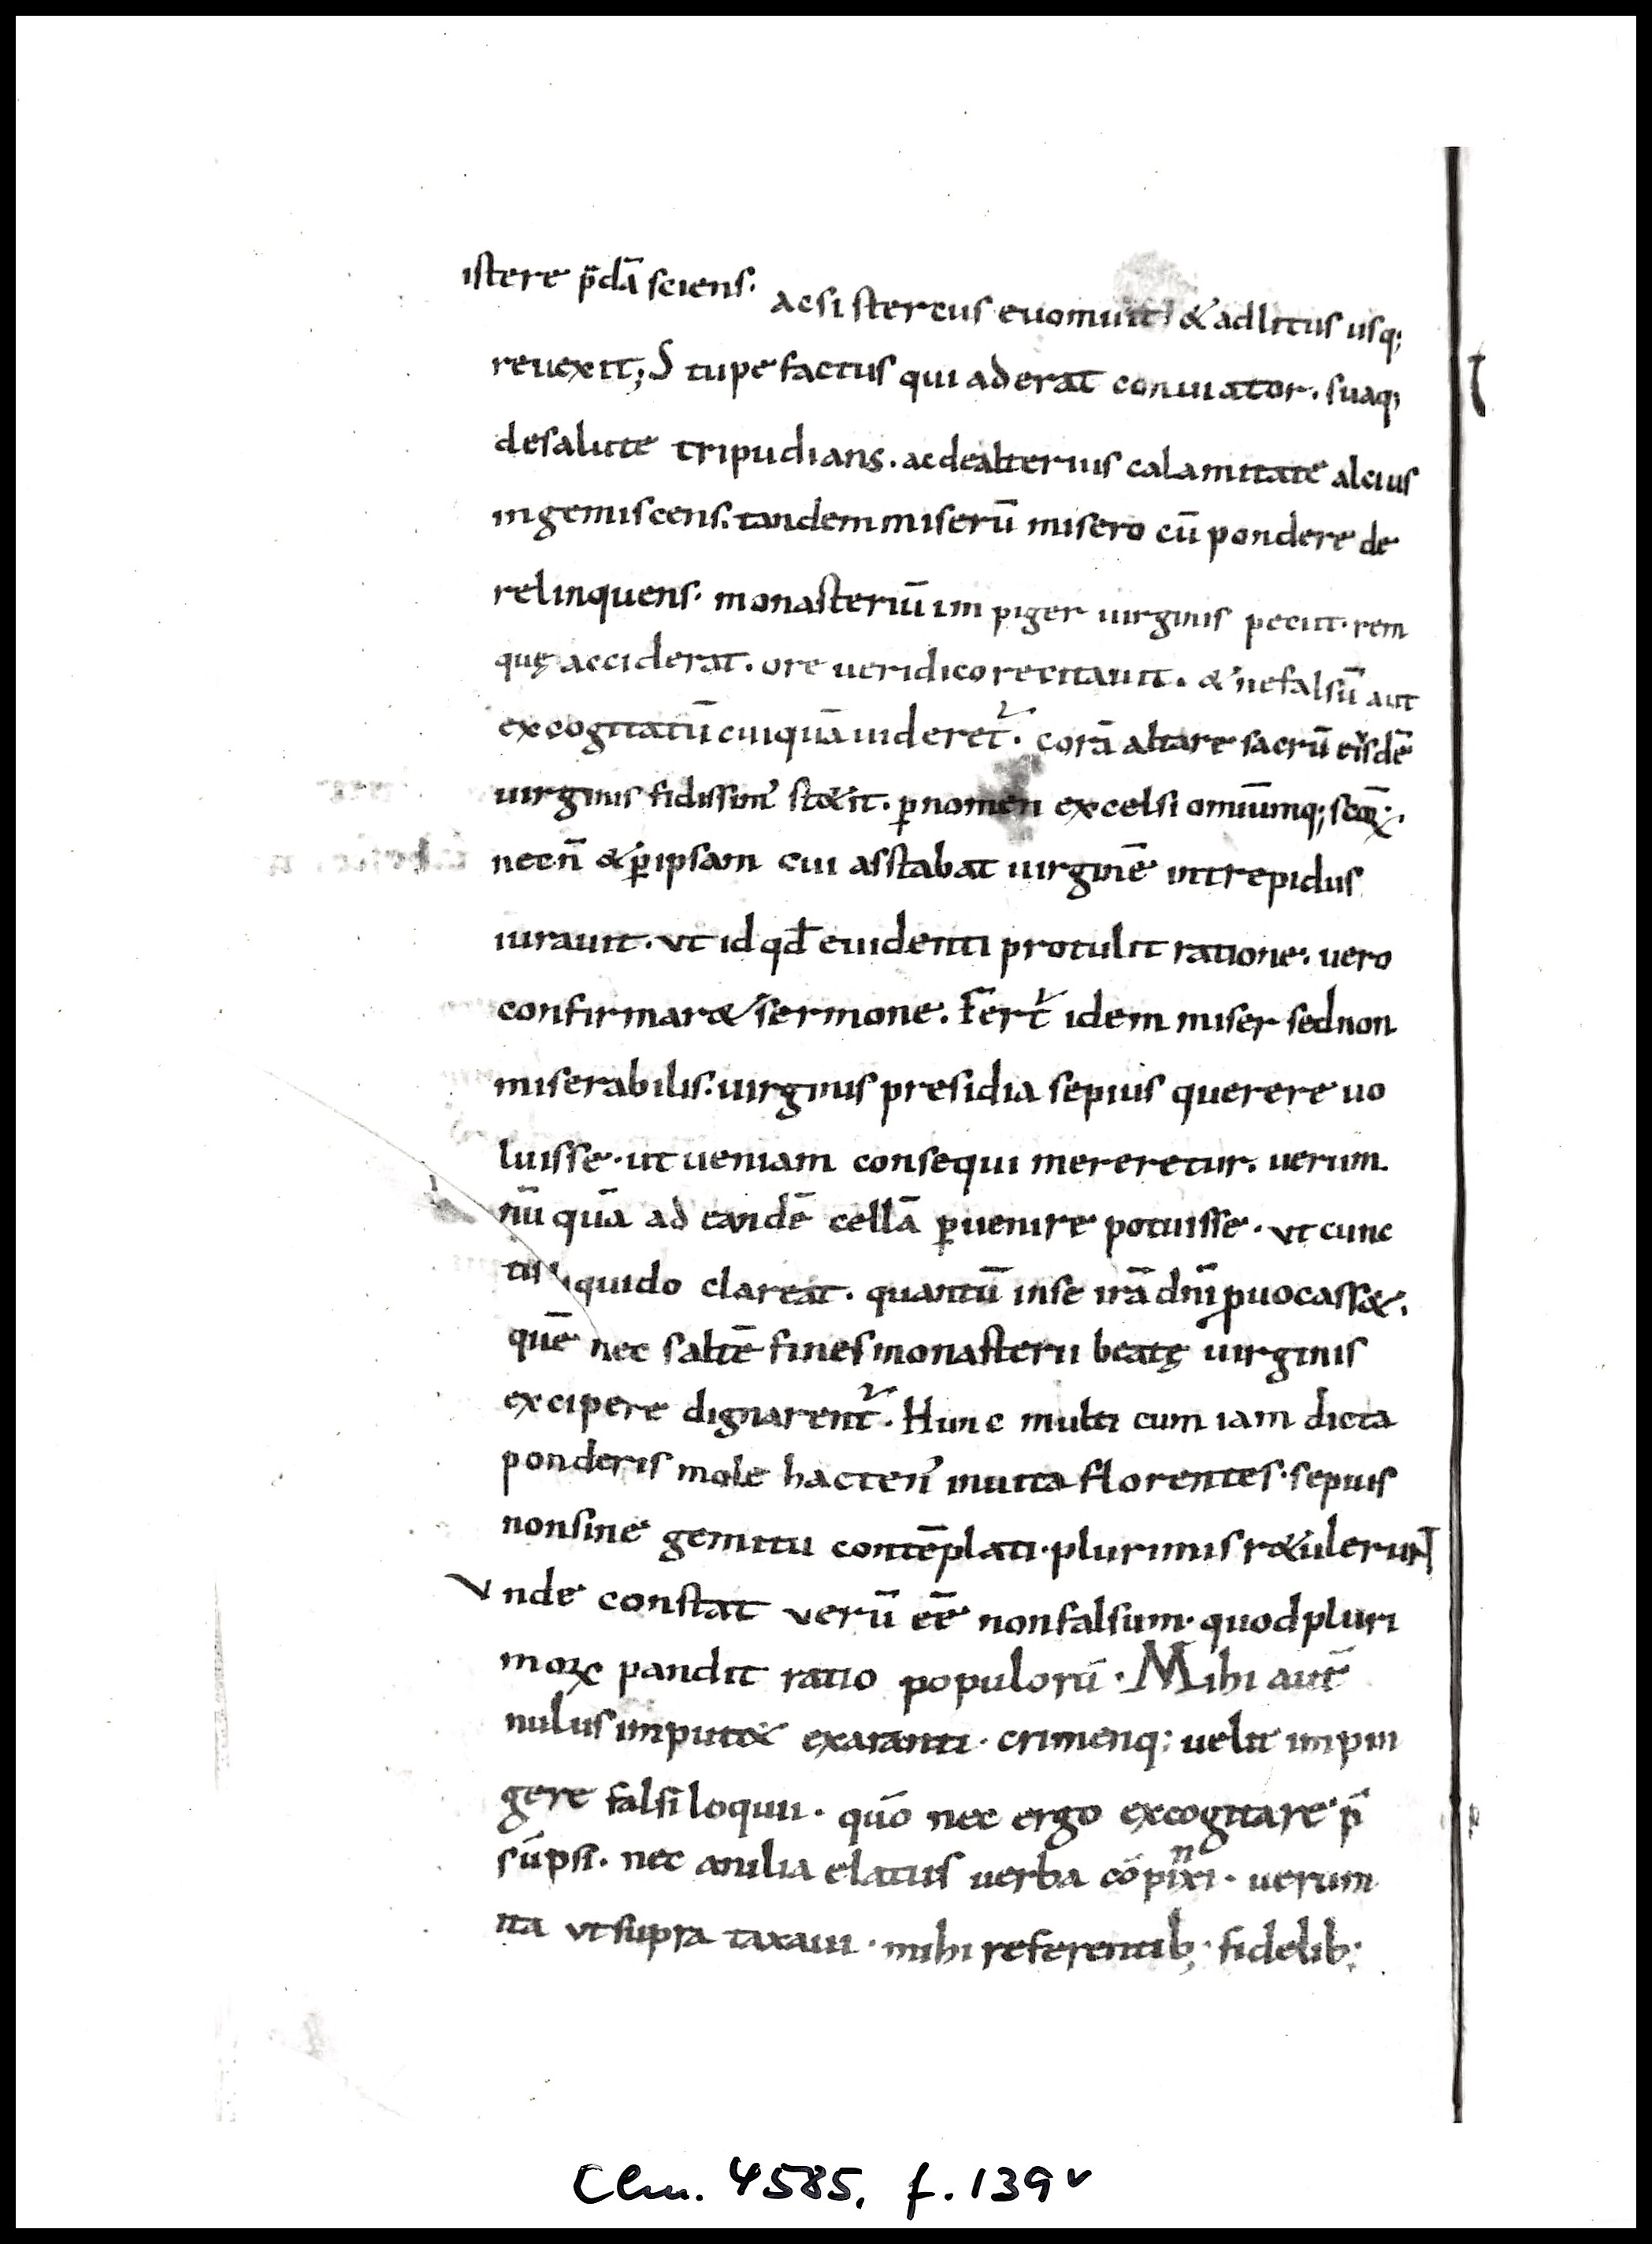 istere p̄dā sciens. acsi stercus euomuit & ad litus usq;
reuexit; Stupefactus qui aderat conuiator. suaq;
de salute tripudians. ac de alterius calamitate alcius
ingemiscens. tandem miserū misero cū pondere de
relinquens. monasteriū impiger uirginis peciit. rem
quę acciderat. ore ueridico recitauit. & ne falsū aut
excogitatū cuiquā uideret᷑. corā altare sacrū eisdē
uirginis fidissim᾽ st&it. ꝑ nomen excelsi omiūmq; scōꝝ.
necn̄ & ꝑ ipsam cui asstabat uirginē intrepidus
iurauit. ut id qđ euidenti protulit ratione. uero
confirmar& sermone. Fert᷑ idem miser sed non
miserabilis. uirginis presidia sepius querere uo
luisse. ut ueniam consequi mereretur. uerum
nū quā ad eandē cellā ꝑuenire potuisse. ut cunc
tis liquido clareat. quantū in se irā dn̄i ꝓuocass&.
quē nec saltē fines monasterii beatę uirginis
excipere dignarent᷑. Hunc multi cum iam dicta
ponderis mole hacten᾽ in uita florentes. sepius
non sine gemitu contēplati. plurimis r&ulerunt
Vnde constat uerū eē non falsum. quod pluri
moꝝ pandit ratio populorū. Mihi autē
nullus imput& exaranti. crimenq; uelit impin
gere falsiloquii. quō nec ergo excogitare p̄
sūpsi. nec anilia elatus uerba cōpinxi. uerum
ita ut supra taxaui. mihi referentib; fidelib;
Clm. 4585, f. 139v